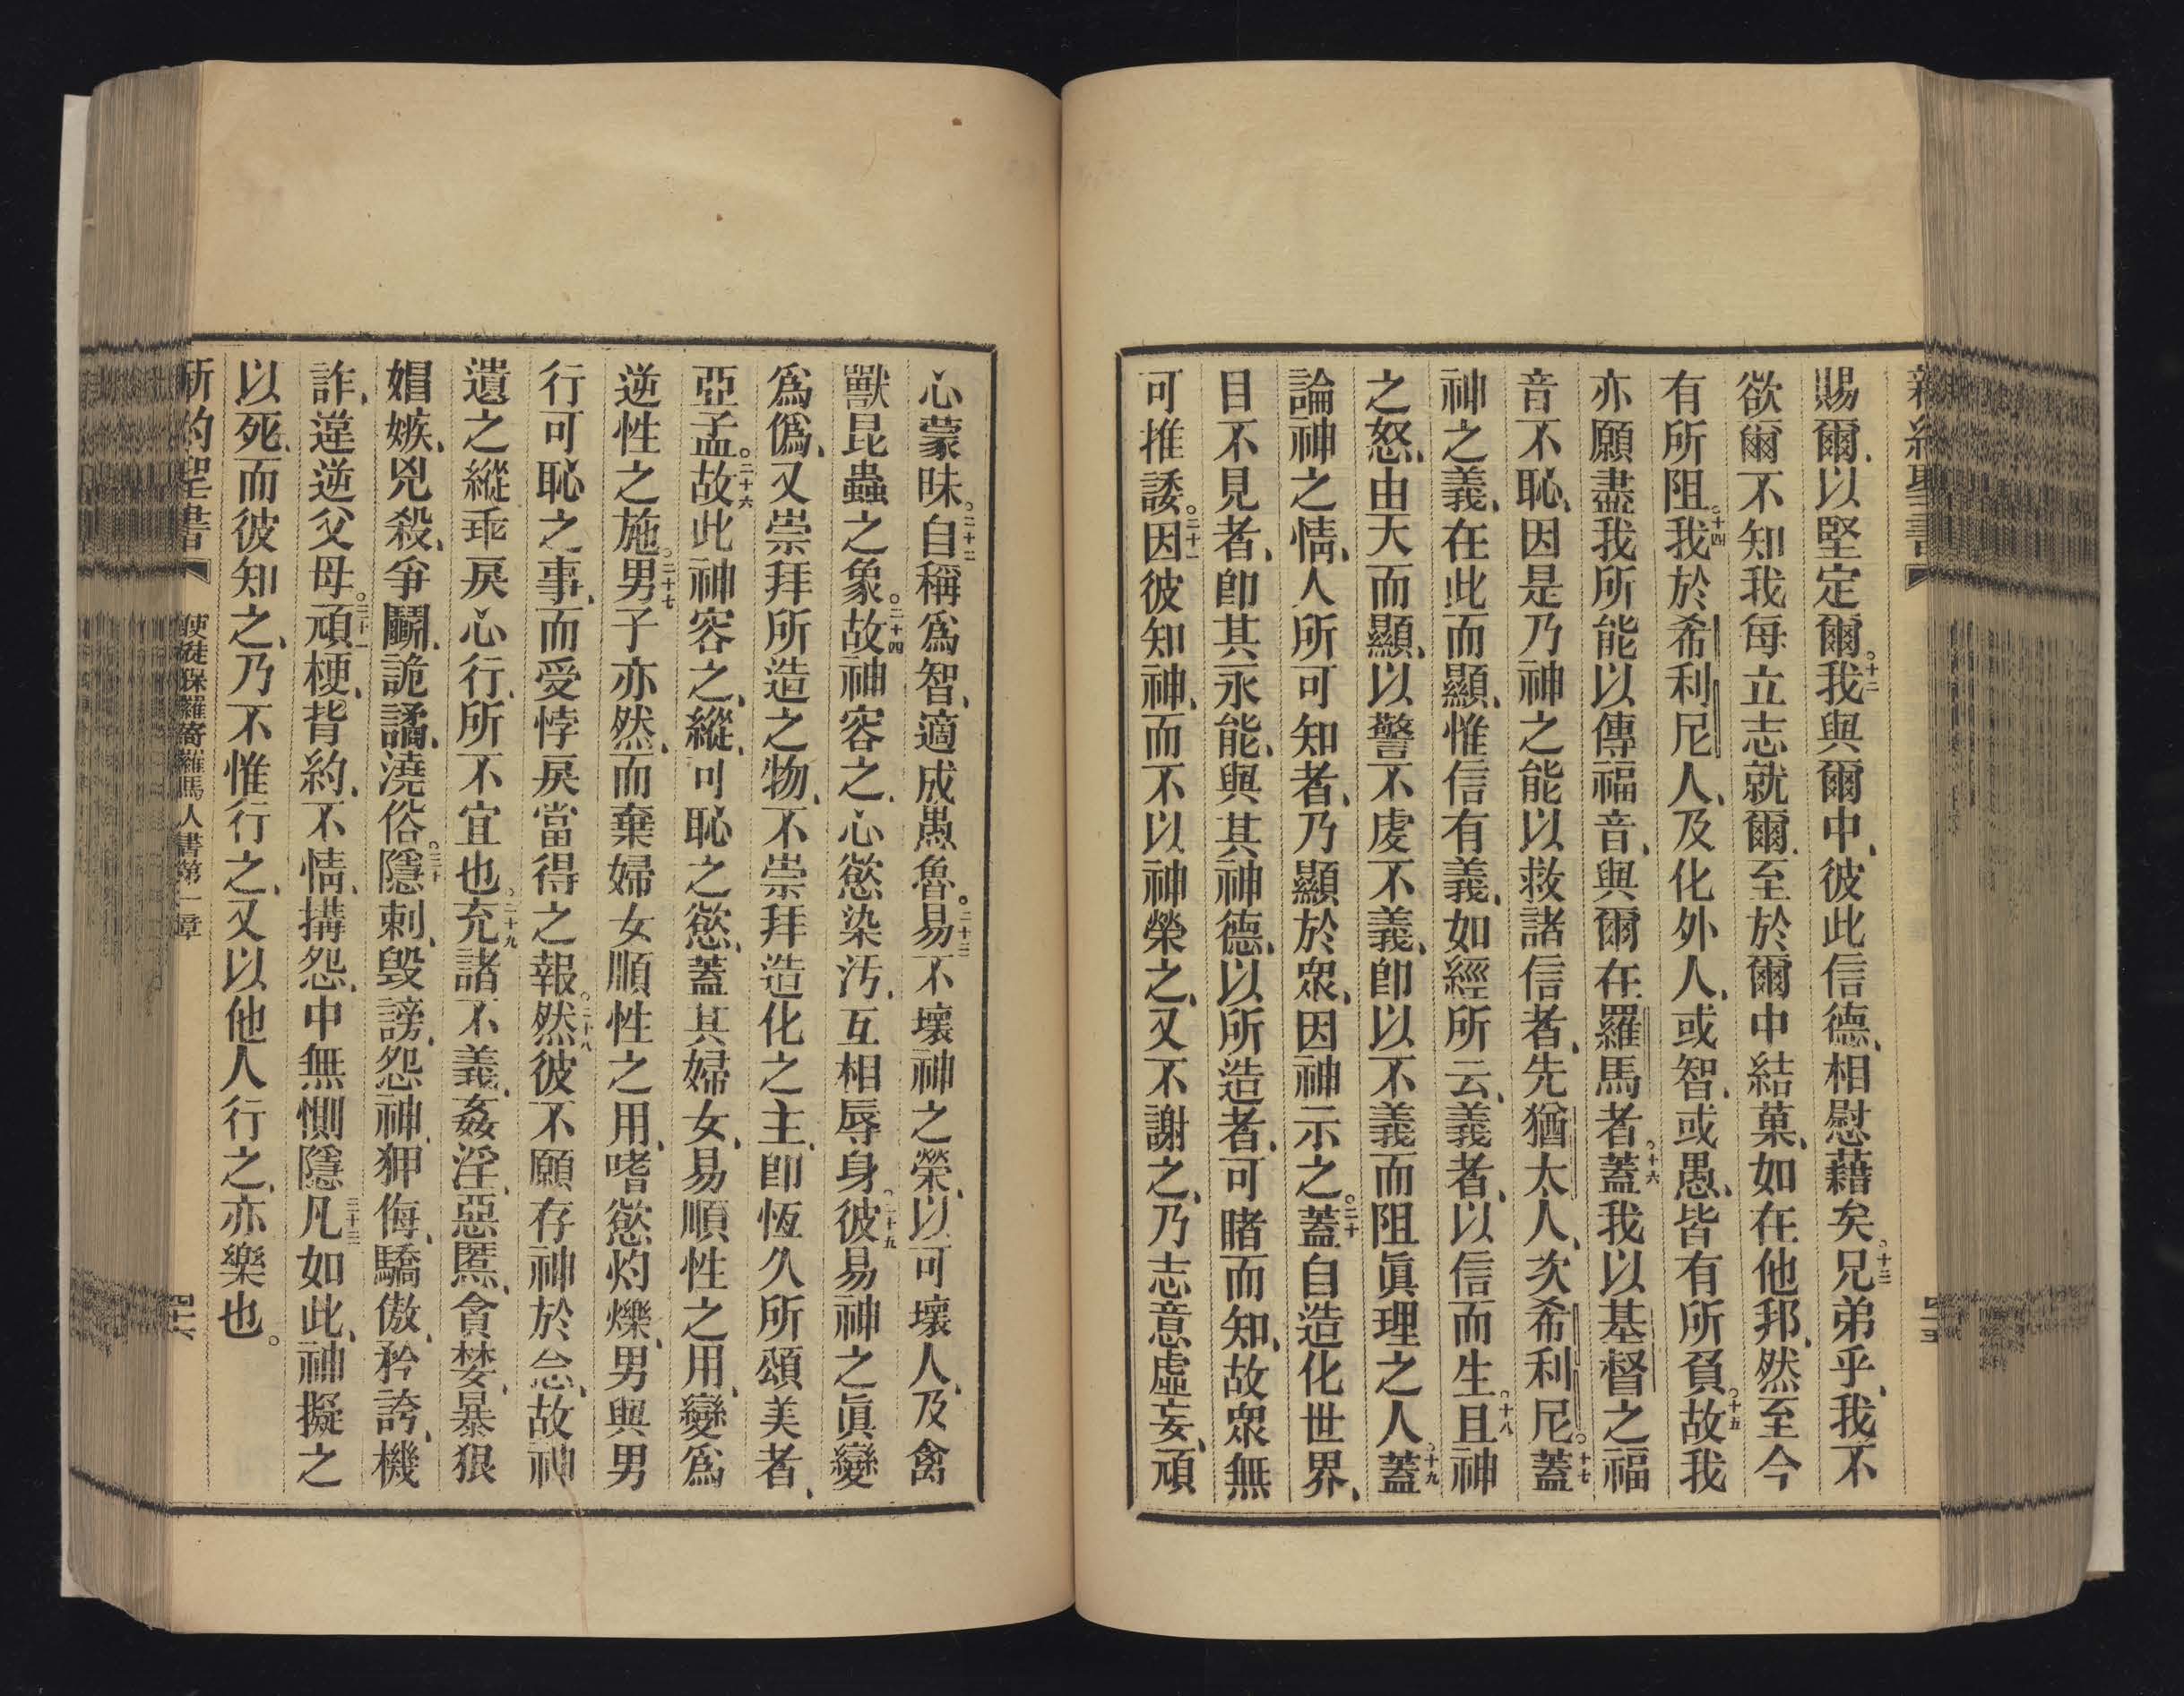 新約聖書
賜爾、以堅定爾。十二我與爾中、彼此信德、相慰藉矣。十三兄弟乎、我不
欲爾不知我每立志就爾、至於爾中結菓、如在他邦、然至今
有所阻。十四我於希利尼人、及化外人、或智、或愚、皆有所負。十五故我
亦願盡我所能以傳福音、與爾在羅馬者。十六蓋我以基督之福
音不恥、因是乃神之能以救諸信者、先猶太人、次希利尼。十七蓋
神之義、在此而顯、惟信有義、如經所云、義者、以信而生。十八且神
之怒、由天而顯、以警不虔不義、卽以不義而阻眞理之人。十九蓋
論神之情、人所可知者、乃顯於衆、因神示之。二十蓋自造化世界、
目不見者、卽其永能、與其神德、以所造者、可睹而知、故衆無
可推諉。二十一因彼知神、而不以神榮之、又不謝之、乃志意虛妄、頑
心蒙昧。二十二自稱爲智、適成愚魯。二十三易不壞神之榮、以可壞人、及禽
獸昆蟲之象。二十四故神容之、心慾染汚、互相辱身。二十五彼易神之眞、變
爲僞、又崇拜所造之物、不崇拜造化之主、卽恆久所頌美者、
亞孟。二十六故此神容之、縱可恥之慾、蓋其婦女、易順性之用、變爲
逆性之施。二十七男子亦然、而棄婦女順性之用、嗜慾灼爍、男與男
行可恥之事、而受悖戾當得之報。二十八然彼不願存神於念、故神
遺之縱乖戾心、行所不宜也。二十九充諸不義、姦淫、惡慝、貪婪、暴狠、
媢嫉、兇殺、爭鬭、詭譎、澆俗。三十隱刺、毀謗、怨神、狎侮、驕傲、矜誇、機
詐、違逆父母。三十一頑梗、背約、不情、搆怨、中無惻隱。三十二凡如此、神擬之
以死、而彼知之、乃不惟行之、又以他人行之、亦樂也。
新約聖書 使徒保羅寄羅馬人書第一章